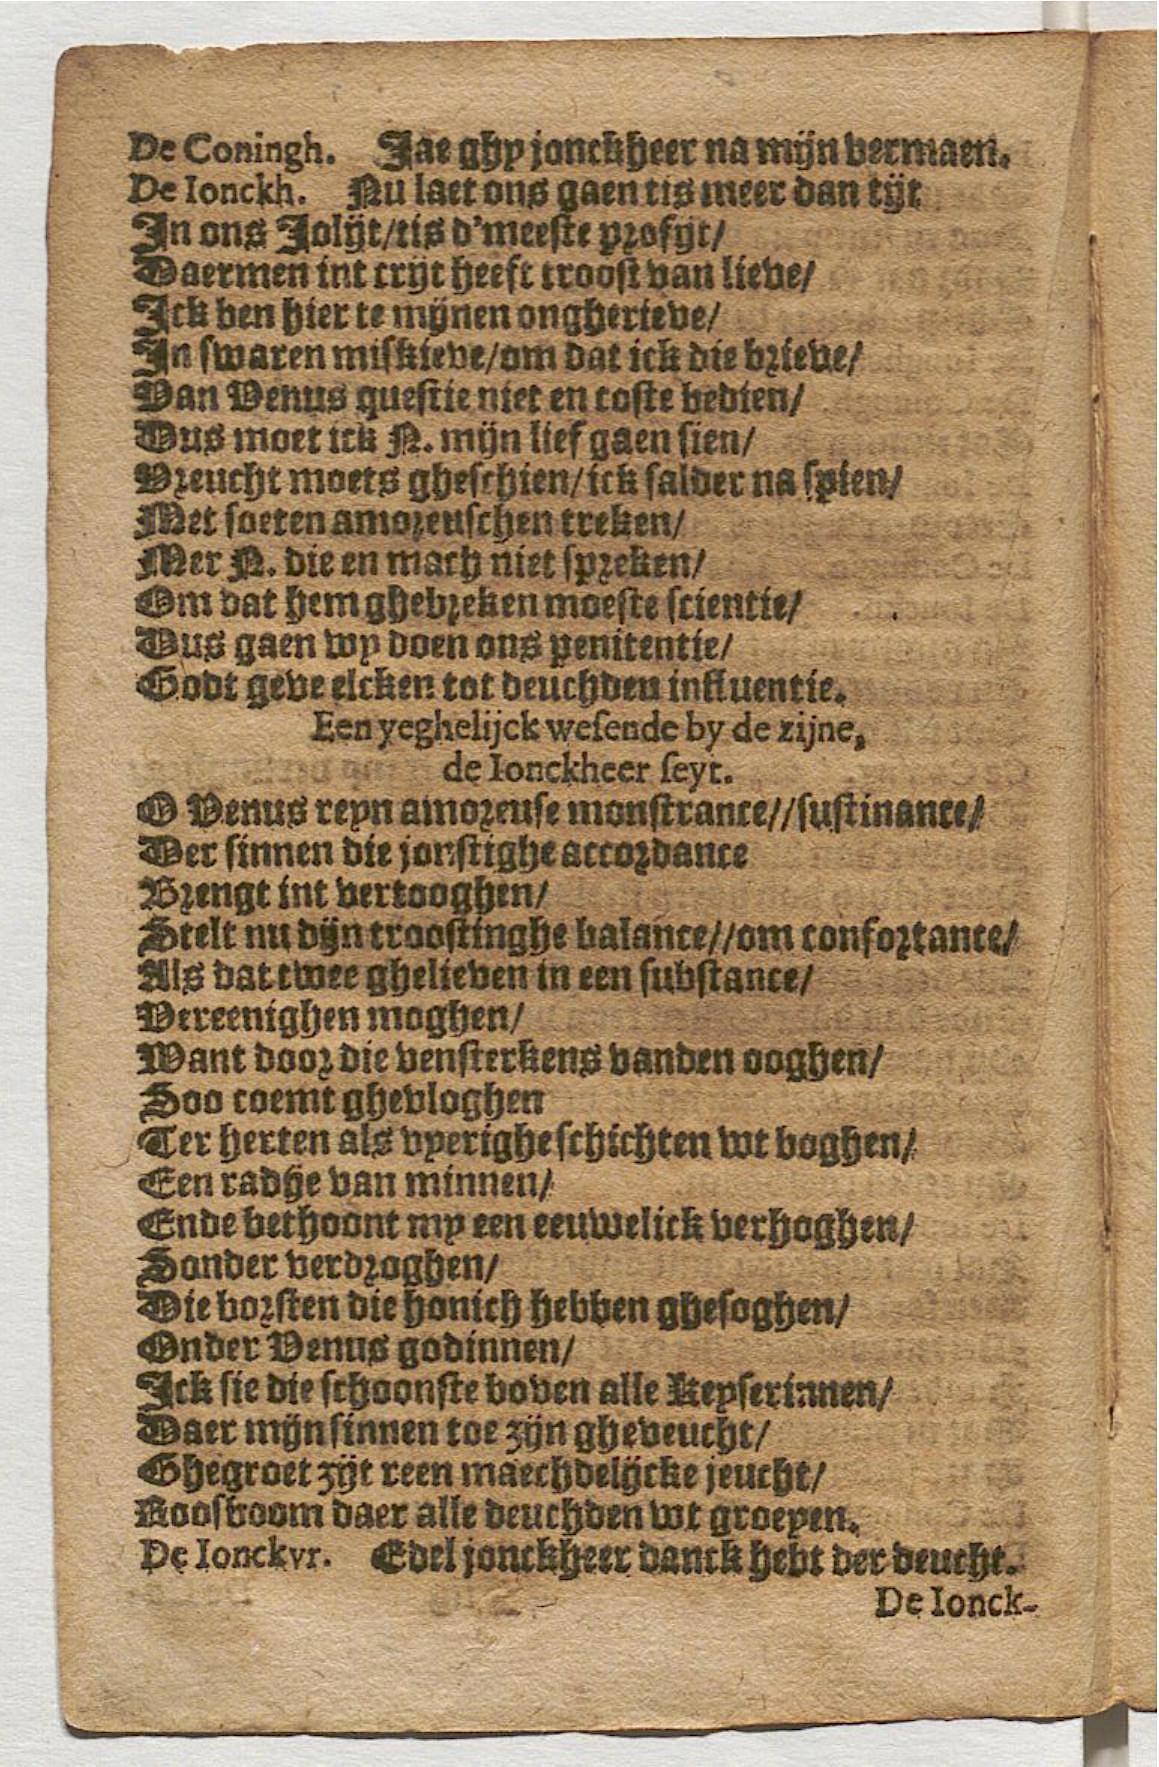 De Coningh. Jae ghy jonckheer na mijn vermaen.
De Ionckh. Nu laet ons gaen tis meer dan tijt
In ons Jolijt/tis d'meeste profijt/
Daermen int crijt heeft troost van lieve/
Ick ben hier te mijnen ongherieve/
In swaren miskieve/om dat ick die brieve/
Van Venus questie niet en coste bedien/
Dus moet ick N. mijn lief gaen sien/
Vreucht moets gheschien/ick salder na spien/
Met soeten amoreuschen treken/
Mer N. die en mach niet spreken/
Om dat hem ghebreken moeste scientie/
Dus gaen wy doen ons penitentie/
Godt geve elcken tot deuchden influentie.
Een yeghelijck wesende by de zijne,
de Ionckheer seyt.
O Venus reyn amoreuse monstrance//sustinance/
Der sinnen die jonstighe accordance
Brengt int vertooghen/
Stelt nu dijn troostinghe balance//om confortance/
Als dat twee ghelieven in een substance/
Vereenighen moghen/
Want door die vensterkens vanden ooghen/
Soo coemt ghevloghen
Ter herten als vyerighe schichten wt boghen/
Een radye van minnen/
Ende bethoont my een eeuwelick verhoghen/
Sonder verdroghen/
Die borsten die honich hebben ghesoghen/
Onder Venus godinnen/
Ick sie die schoonste boven alle Keyserinnen/
Daer mijn sinnen toe zijn gheveucht/
Ghegroet zijt reen maechdelijcke jeucht/
Roosboom daer alle deuchden wt groeyen.
De Ionckvr. Edel jonckheer danck hebt der deucht.
De Ionck-